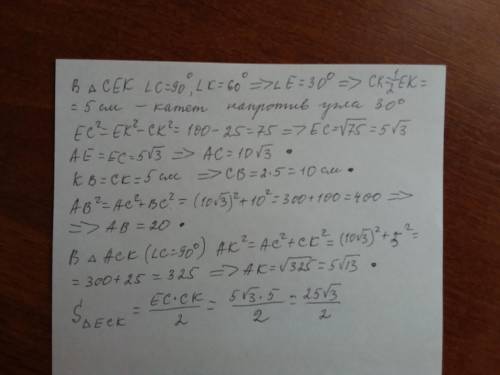 В △ CEK ∠C=90°, ∠K=60° => ∠E=30° => CK=½EK=
= 5 см – катет напротив угла 30°
EC²=EK²-CK²=100-25=75 => EC=√75=5√3
AE=EC=5√3 => AC=10√3 •
KB=CK=5 см => CB=2·5=10 см •
AB²=AC²+BC²=(10√3)²+10²=300+100=400 =>
=> AB=20 •
В △ ACK (∠C=90°) AK²=AC²+CK²=(10√3)²+5²=
=300+25=325 => AK=√325=5√13 •
S△ECK = EC·CK/2 = 5√3·5/2 = 25√3/2